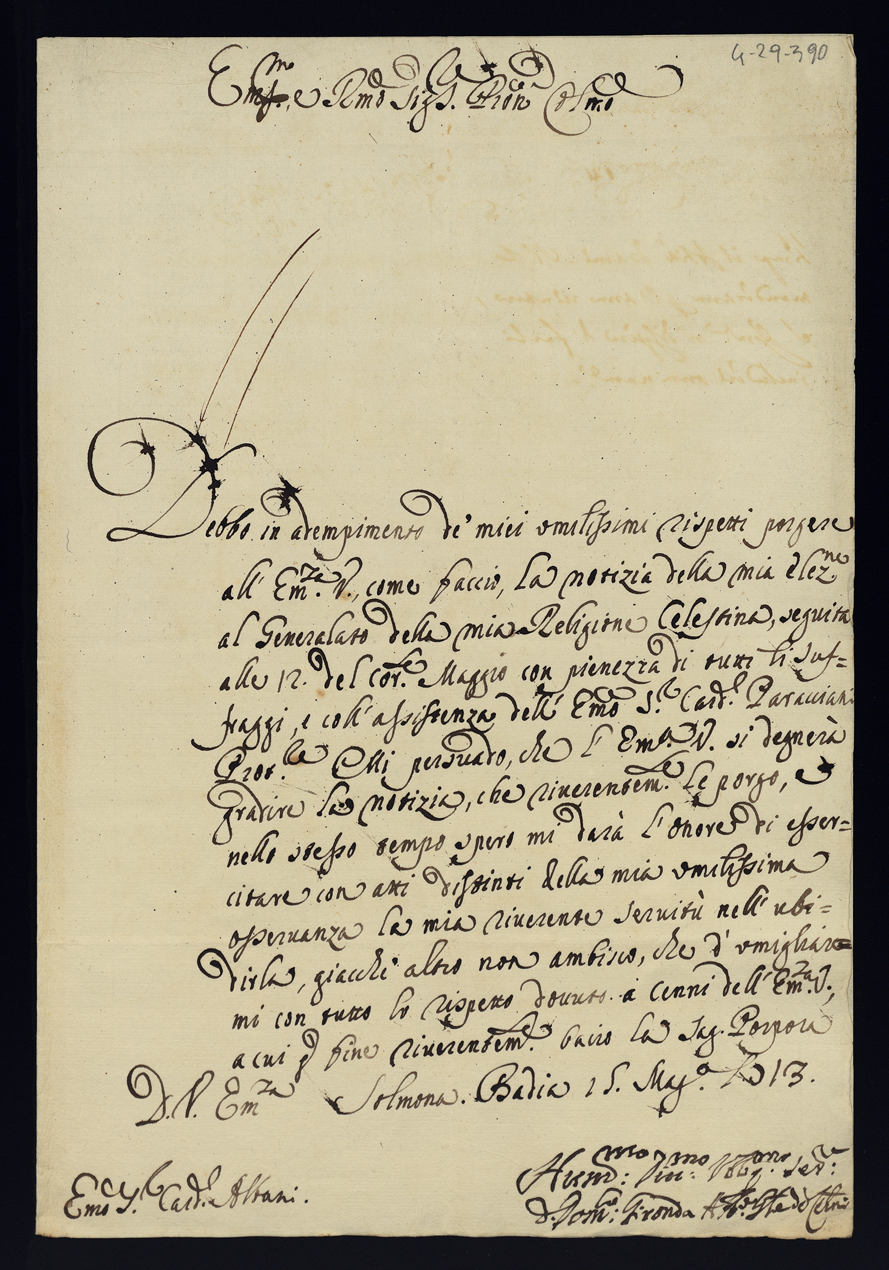 4-29-390
Em.mo e Rmo Sig.r Pron Colmo
Debbo in adempimento de' miei umilissimi rispetti porgere
all' Em.za V., come faccio, la notizia della mia elez.ne
al Generalato della mia Religione Celestina, seguita
alle 12. del cor.te Maggio con pienezza di tutti li suf=
fraggi, e coll' assistenza dell' Emo S.r Card.l Paracciani
Prot.re Mi persuado, che l' Em.za V. si degnerà
gradire la notizia, che riverentem.te Le porgo, e
nello stesso tempo spero mi darà l'onore di eser=
citare con atti distinti della mia umilissima
osservanza la mia riverente servitù nell' ubi=
dirla, giacchè altro non ambisco, che d' umigliar=
mi con tutto lo rispetto dovuto a cenni dell' Em.za V.,
a cui p fine riverentem.te bacio la Sag. Porpora
D. V. Em.za Solmona. Badia 15. Mag.o 1713.
Humil.mo Div.mo Obbg.mo Ser.re
Emo S.r Card.l Albani.
D. Dom.co Gironda